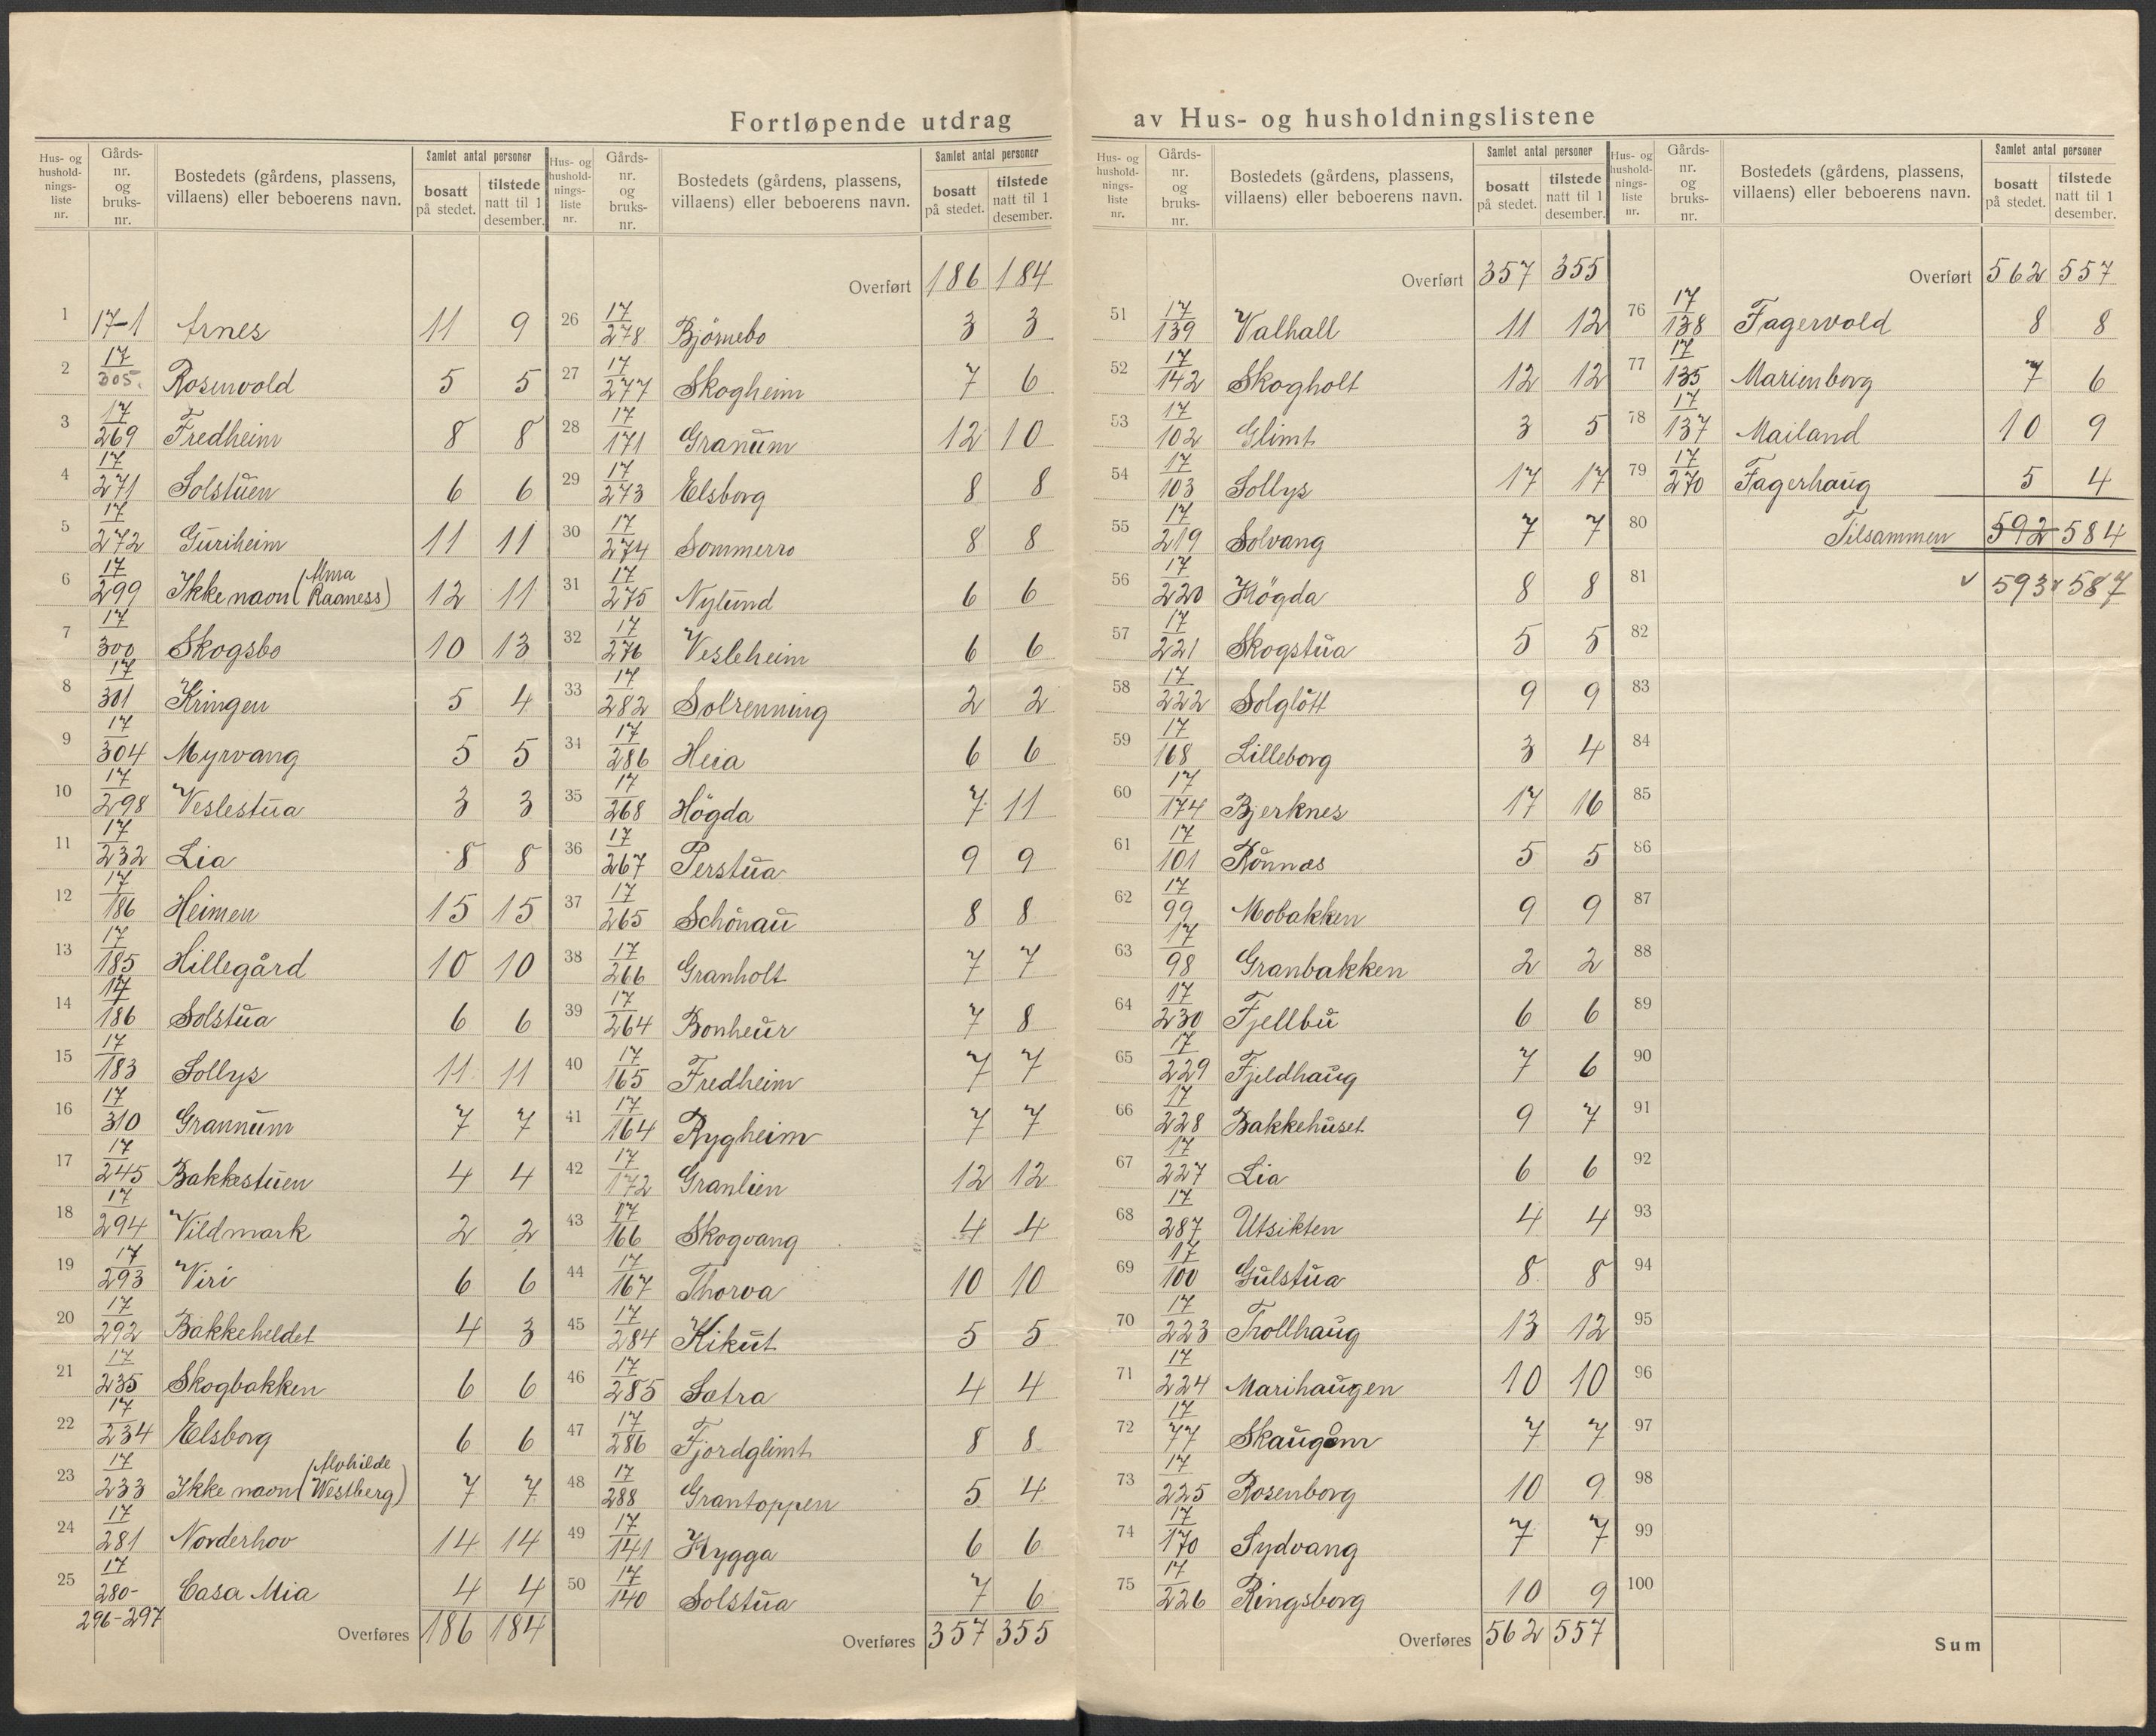 Fortløpende utdrag av Hus- og husholdningslistene
Hus- og husholdnings-liste nr. Gårds-nr. og bruks-nr. Bostedets (gårdens, plassens, villaens) eller beboerens navn. Samlet antal personer bosatt på stedet. tilstede natt til 1 desember.
1 17-1 Arnes 11 9
2 17/305. Rosenvold 5 5
3 17/269 Fredheim 8 8
4 17/271 Solstuen 6 6
5 17/272 Guriheim 11 11
6 17/299 Ikke navn (Alma Raaness) 12 11
7 17/300 Skogsbo 10 13
8 17/301 Kringen 5 4
9 17/304 Myrvang 5 5
10 17/298 Veslestua 3 3
11 17/232 Lia 8 8
12 17/186 Heimen 15 15
13 17/185 Hillegård 10 10
14 17/186 Solstua 6 6
15 17/183 Sollys 11 11
16 17/310 Grannum 7 7
17 17/245 Bakkestuen 4 4
18 17/294 Vildmark 2 2
19 17/293 Viri 6 6
20 17/292 Bakkeheldet 4 3
21 17/235 Skogbakken 6 6
22 17/234 Elsborg 6 6
23 17/233 Ikke navn (Alvhilde Westberg) 7 7
24 17/281 Norderhov 14 14
25 17/280- Casa Mia 4 4
296-297
Overføres 186 184
Hus- og husholdnings-liste nr. Gårds-nr. og bruks-nr. Bostedets (gårdens, plassens, villaens) eller beboerens navn. Samlet antal personer bosatt på stedet. tilstede natt til 1 desember.
Overført 186 184
26 17/278 Björnebo 3 3
27 17/277 Skogheim 7 6
28 17/171 Granum 12 10
29 17/273 Elsborg 8 8
30 17/274 Sommerro 8 8
31 17/275 Nylund 6 6
32 17/276 Vesleheim 6 6
33 17/282 Solrenning 2 2
34 17/286 Heia 6 6
35 17/268 Högda 7 11
36 17/267 Perstua 9 9
37 17/265 Schönau 8 8
38 17/266 Granholt 7 7
39 17/264 Bonheur 7 8
40 17/165 Fredheim 7 7
41 17/164 Rygheim 7 7
42 17/172 Granlien 12 12
43 17/166 Skogvang 4 4
44 17/167 Thorva 10 10
45 17/284 Kikut 5 5
46 17/285 Sætra 4 4
47 17/286 Fjordglimt 8 8
48 17/288 Grantoppen 5 4
49 17/141 Hygga 6 6
50 17/140 Solstua 7 6
Overføres 357 355
Hus- og husholdnings-liste nr. Gårds-nr. og bruks-nr. Bostedets (gårdens, plassens, villaens) eller beboerens navn. Samlet antal personer bosatt på stedet. tilstede natt til 1 desember.
Overført 357 355
51 17/139 Valhall 11 12
52 17/142 Skogholt 12 12
53 17/102 Glimt 3 5
54 17/103 Sollys 17 17
55 17/219 Solvang 7 7
56 17/220 Högda 8 8
57 17/221 Skogstua 5 5
58 17/222 Solglött 9 9
59 17/168 Lilleborg 3 4
60 17/174 Bjerknes 17 16
61 17/101 Rönnås 5 5
62 17/99 Mobakken 9 9
63 17/98 Granbakken 2 2
64 17/230 Fjellbu 6 6
65 17/229 Fjeldhaug 7 6
66 17/228 Bakkehuset 9 7
67 17/227 Lia 6 6
68 17/287 Utsikten 4 4
69 17/100 Gulstua 8 8
70 17/223 Trollhaug 13 12
71 17/224 Marihaugen 10 10
72 17/77 Skaugum 7 7
73 17/225 Rosenborg 10 9
74 17/170 Sydvang 7 7
75 17/226 Ringsborg 10 9
Overføres 562 557
Hus- og husholdnings-liste nr. Gårds-nr. og bruks-nr. Bostedets (gårdens, plassens, villaens) eller beboerens navn. Samlet antal personer bosatt på stedet. tilstede natt til 1 desember.
Overført 562 557
76 17/138 Fagervold 8 8
77 17/135 Marienborg 7 6
78 17/137 Mailand 10 9
79 17/270 Fagerhaug 5 4
80 Tilsammen 592 584
81 v 593 v 587
82
83
84
85
86
87
88
89
90
91
92
93
94
95
96
97
98
99
100
Sum